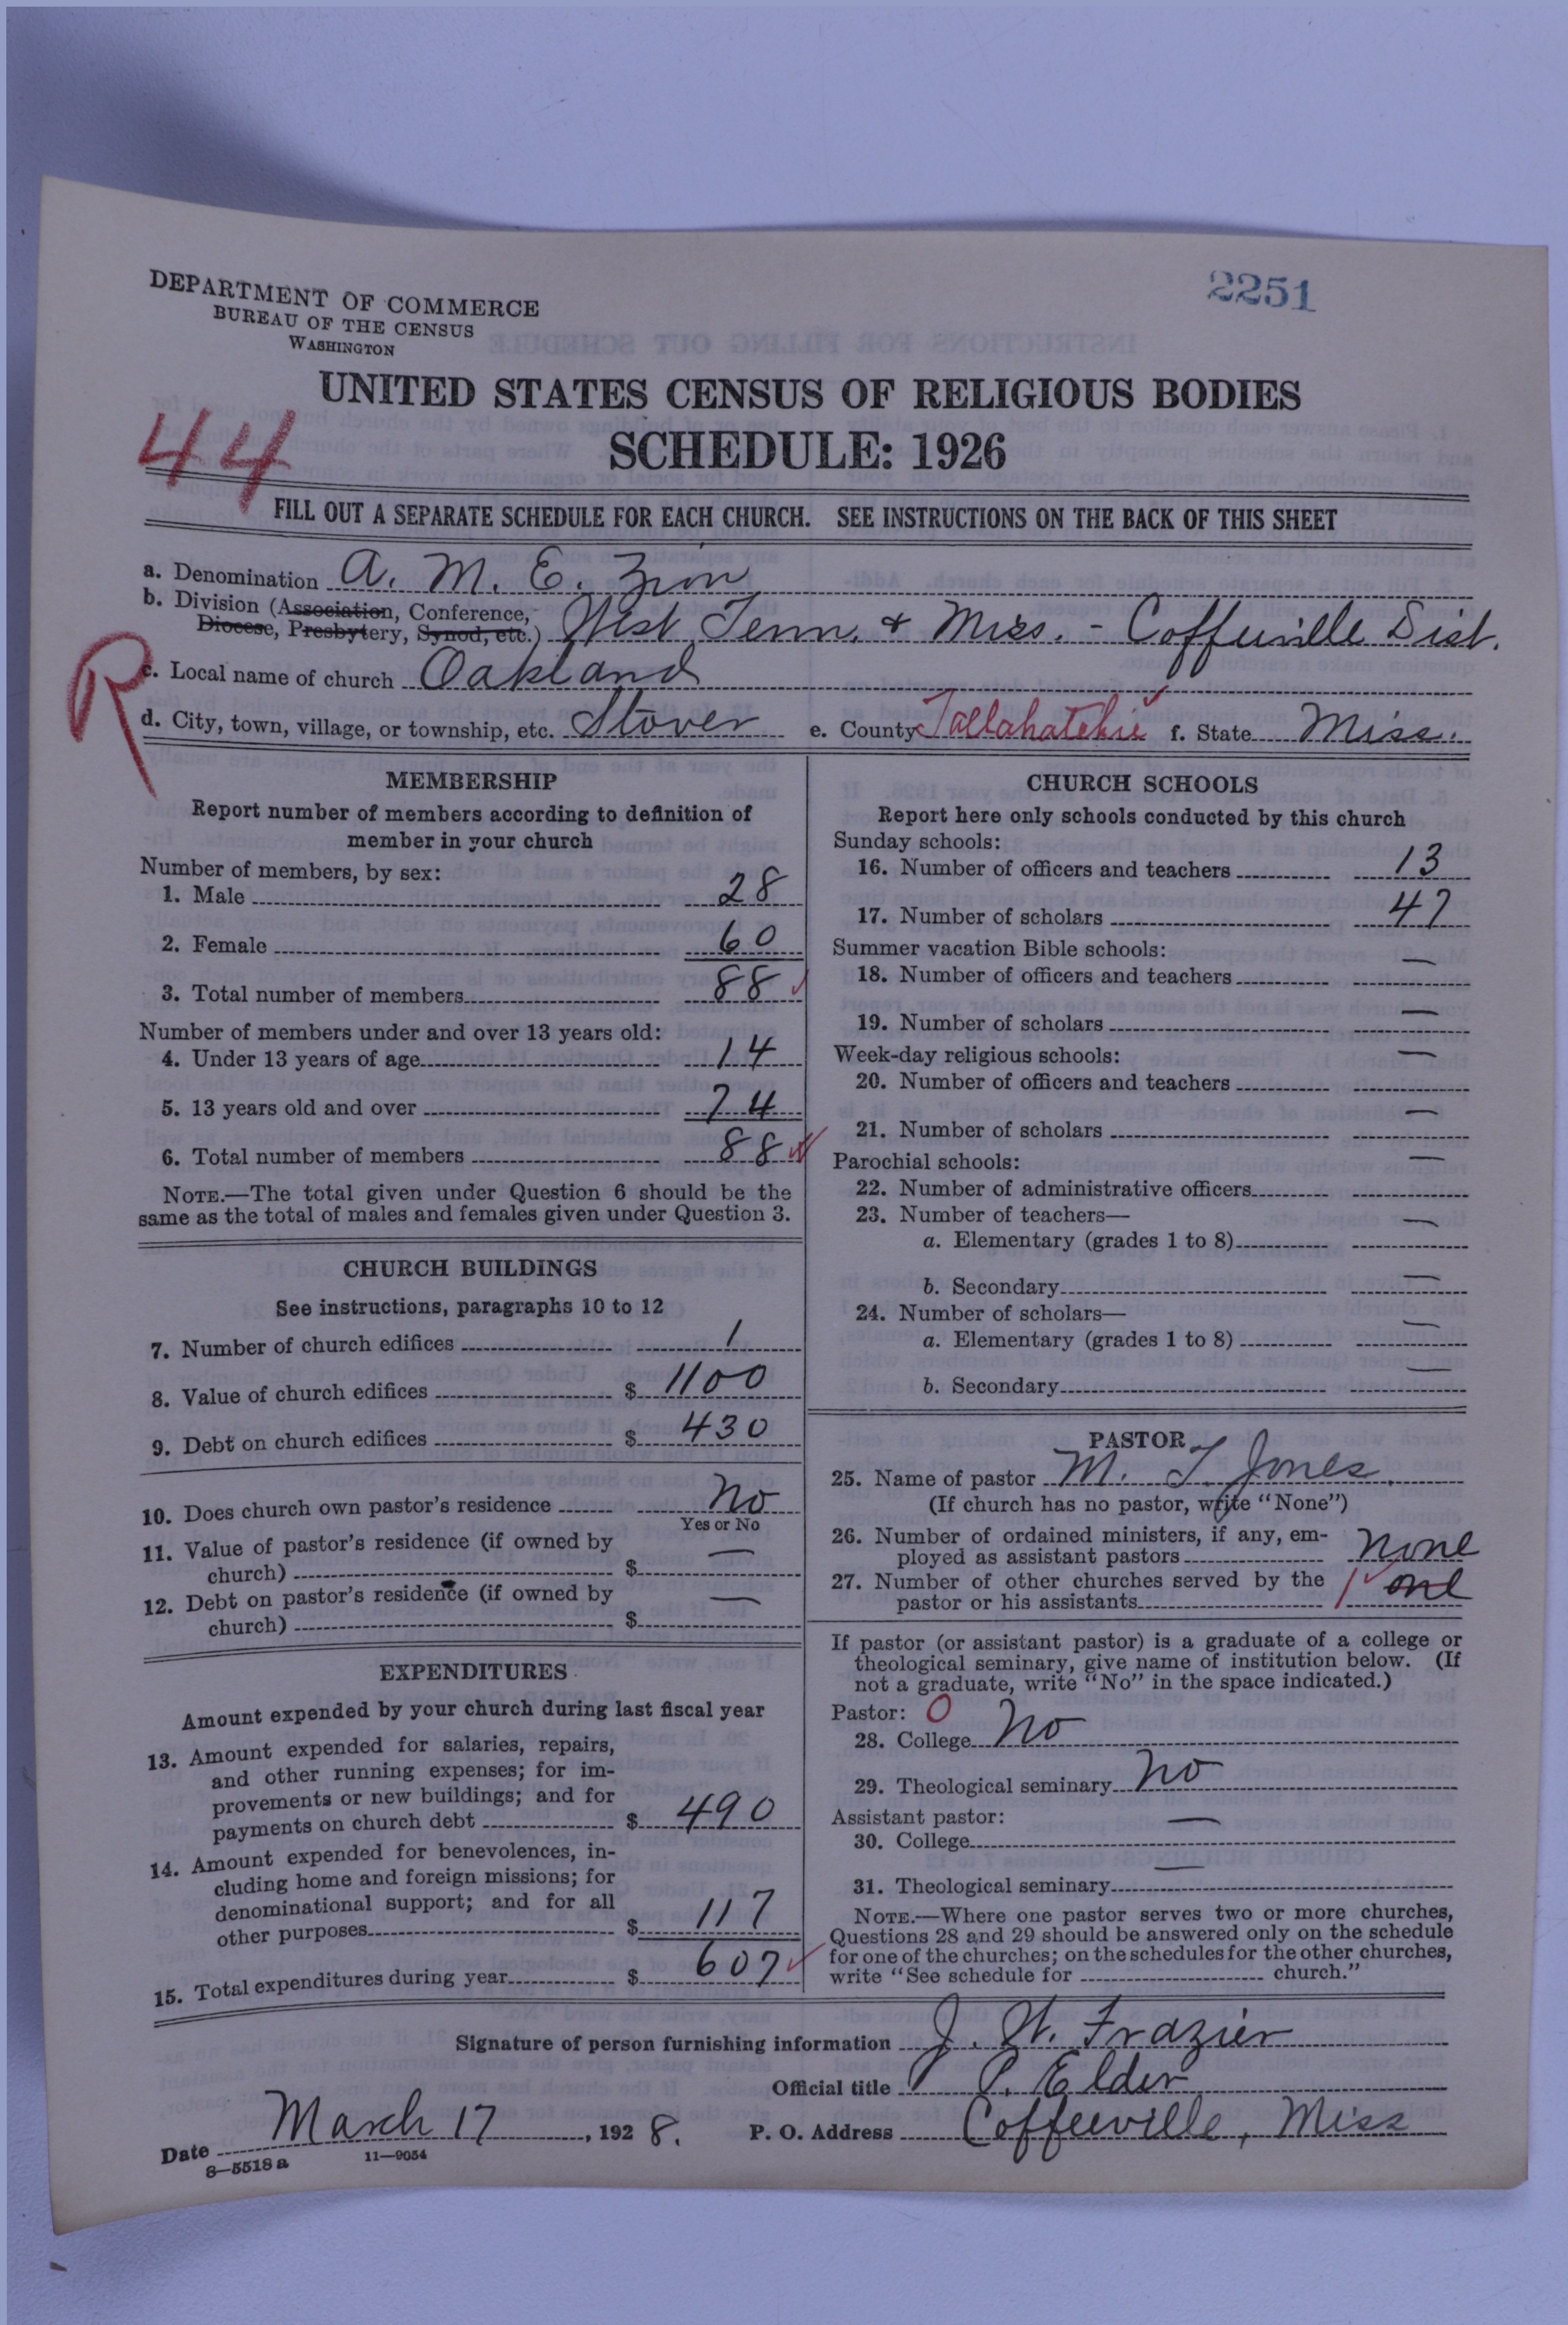 2251
DEPARTMENT OF COMMERCE
BUREAU OF THE CENSUS
WASHINGTON
UNITED STATES CENSUS OF RELIGIOUS BODIES
SCHEDULE: 1926
44
FILL OUT A SEPARATE SCHEDULE FOR EACH CHURCH. SEE INSTRUCTIONS ON THE BACK OF THIS SHEET
a. Denomination A. M. E. Zion
b. Division (Association, Conference,
Diocese, Presbytery, Synod, etc.) West Tenn. & Miss. - Coffeeville Dist.
R
c. Local name of church Oakland
d. City, town, village, or township, etc. Stover e. County Tallahatchie f. State Miss.
MEMBERSHIP
Report number of members according to definition of
member in your church
Number of members, by sex:
1. Male 28
2. Female 60
3. Total number of members 88
Number of members under and over 13 years old:
4. Under 13 years of age 14
5. 13 years old and over 74
6. Total number of members 88
NOTE.—The total given under Question 6 should be the
same as the total of males and females given under Question 3.
CHURCH BUILDINGS
See instructions, paragraphs 10 to 12
7. Number of church edifices 1
8. Value of church edifices $ 1100
9. Debt on church edifices $ 430
10. Does church own pastor's residence No
Yes or No
11. Value of pastor's residence (if owned by
church) $ —
12. Debt on pastor's residence (if owned by
church) $ —
EXPENDITURES
Amount expended by your church during last fiscal year
13. Amount expended for salaries, repairs,
and other running expenses; for im-
provements or new buildings; and for
payments on church debt $ 490
14. Amount expended for benevolences, in-
cluding home and foreign missions; for
denominational support; and for all
other purposes $ 117
15. Total expenditures during year $ 607
CHURCH SCHOOLS
Report here only schools conducted by this church
Sunday schools:
16. Number of officers and teachers 13
17. Number of scholars 47
Summer vacation Bible schools:
18. Number of officers and teachers —
19. Number of scholars —
Week-day religious schools:
20. Number of officers and teachers —
21. Number of scholars —
Parochial schools:
22. Number of administrative officers —
23. Number of teachers—
a. Elementary (grades 1 to 8) —
b. Secondary —
24. Number of scholars—
a. Elementary (grades 1 to 8) —
b. Secondary —
PASTOR
25. Name of pastor M. T. Jones.
(If church has no pastor, write "None")
26. Number of ordained ministers, if any, em-
ployed as assistant pastors none
27. Number of other churches served by the
pastor or his assistants 1 one
If pastor (or assistant pastor) is a graduate of a college or
theological seminary, give name of institution below. (If
not a graduate, write "No" in the space indicated.)
Pastor: 0
28. College No
29. Theological seminary No
Assistant pastor:
30. College —
31. Theological seminary —
NOTE.—Where one pastor serves two or more churches,
Questions 28 and 29 should be answered only on the schedule
for one of the churches; on the schedules for the other churches,
write "See schedule for church."
Signature of person furnishing information J. W. Frazier
Official title P. Elder
Date March 17, 1928. P. O. Address Coffeeville, Miss
8—5518 a 11—9054